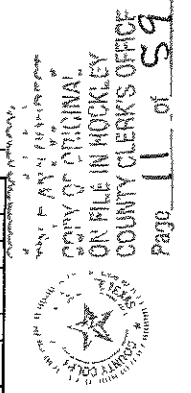 COPY OF ORIGINAL
ON FILE IN HOCKLEY
COUNTY CLERK'S OFFICE
Page 11 of 59
TEXAS
COUNTY